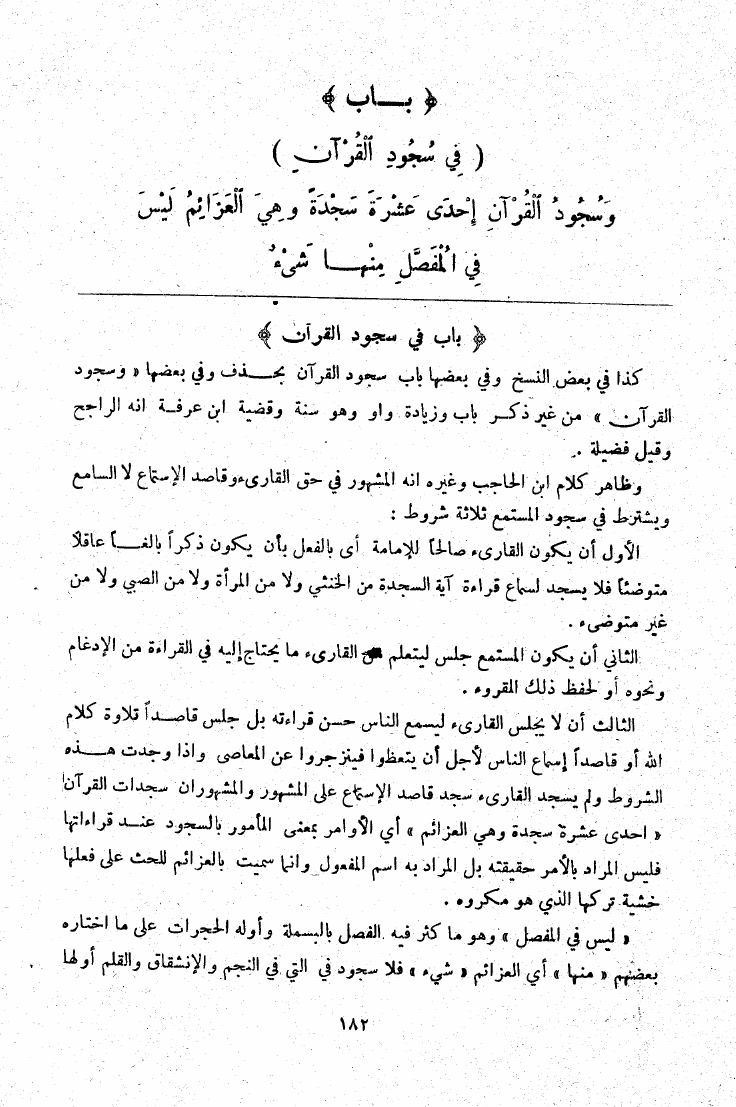 ﴿ بـــاب ﴾
( فِي سُجُودِ ٱلْقُرْآنِ )
وَسُجُودُ ٱلْقُرْآنِ إِحْدَى عَشْرَةَ سَجْدَةً وهِيَ ٱلْعَزَائِمُ لَيْسَ
فِي الْمُفَصَّلِ مِنْهـــا شَىْءٌ
﴿ باب في سجود القرآن ﴾
كذا في بعض النسخ وفي بعضها باب سجود القرآن بحـــذف وفي بعضها « وسجود
القرآن » من غير ذكـــر باب وزيادة واو وهو سنة وقضية ابن عرفـة انه الراجح
وقيل فضيلة .
وظاهر كلام ابن الحاجب وغيره انه المشهور في حق القارىء وقاصد الإستماع لا السامع
ويشترط في سجود المستمع ثلاثة شروط :
الأول أن يكون القارىء صالحاً للإمامة أى بالفعل بأن يكون ذكراً بالغـــاً عاقلاً
متوضئاً فلا يسجد لسماع قراءة آية السجدة من الخنثي ولا من المرأة ولا من الصبي ولا من
غير متوضىء .
الثاني أن يكون المستمع جلس ليتعلم القارىء ما يحتاج إليه في القراءة من الإدغام
ونحوه أو لحفظ ذلك المقروء .
الثالث أن لا يجلس القارىء ليسمع الناس حسن قراءته بل جلس قاصـداً تلاوة كلام
الله أو قاصداً إسماع الناس لأجل أن يتعظوا فينزجروا عن المعاصى واذا وجدت هـــذه
الشروط ولم يسجد القارىء سجد قاصد الإستماع على المشهور والمشهوران سجدات القرآن
« احدى عشرة سجدة وهي العزائم » أي الأوامر بمعنى المأمور بالسجود عنـــد قراءاتها
فليس المراد بالأمر حقيقته بل المراد به اسم المفعول وانما سميت بالعزائم للحث على فعلها
خشية تركها الذي هو مكروه .
« ليس في المفصل » وهو ما كثر فيه الفصل بالبسملة وأوله الحجرات على ما اختاره
بعضهم « منها » أي العزائم « شيء » فلا سجود في التي في النجم والإنشقاق والقلم أولها
١٨٢